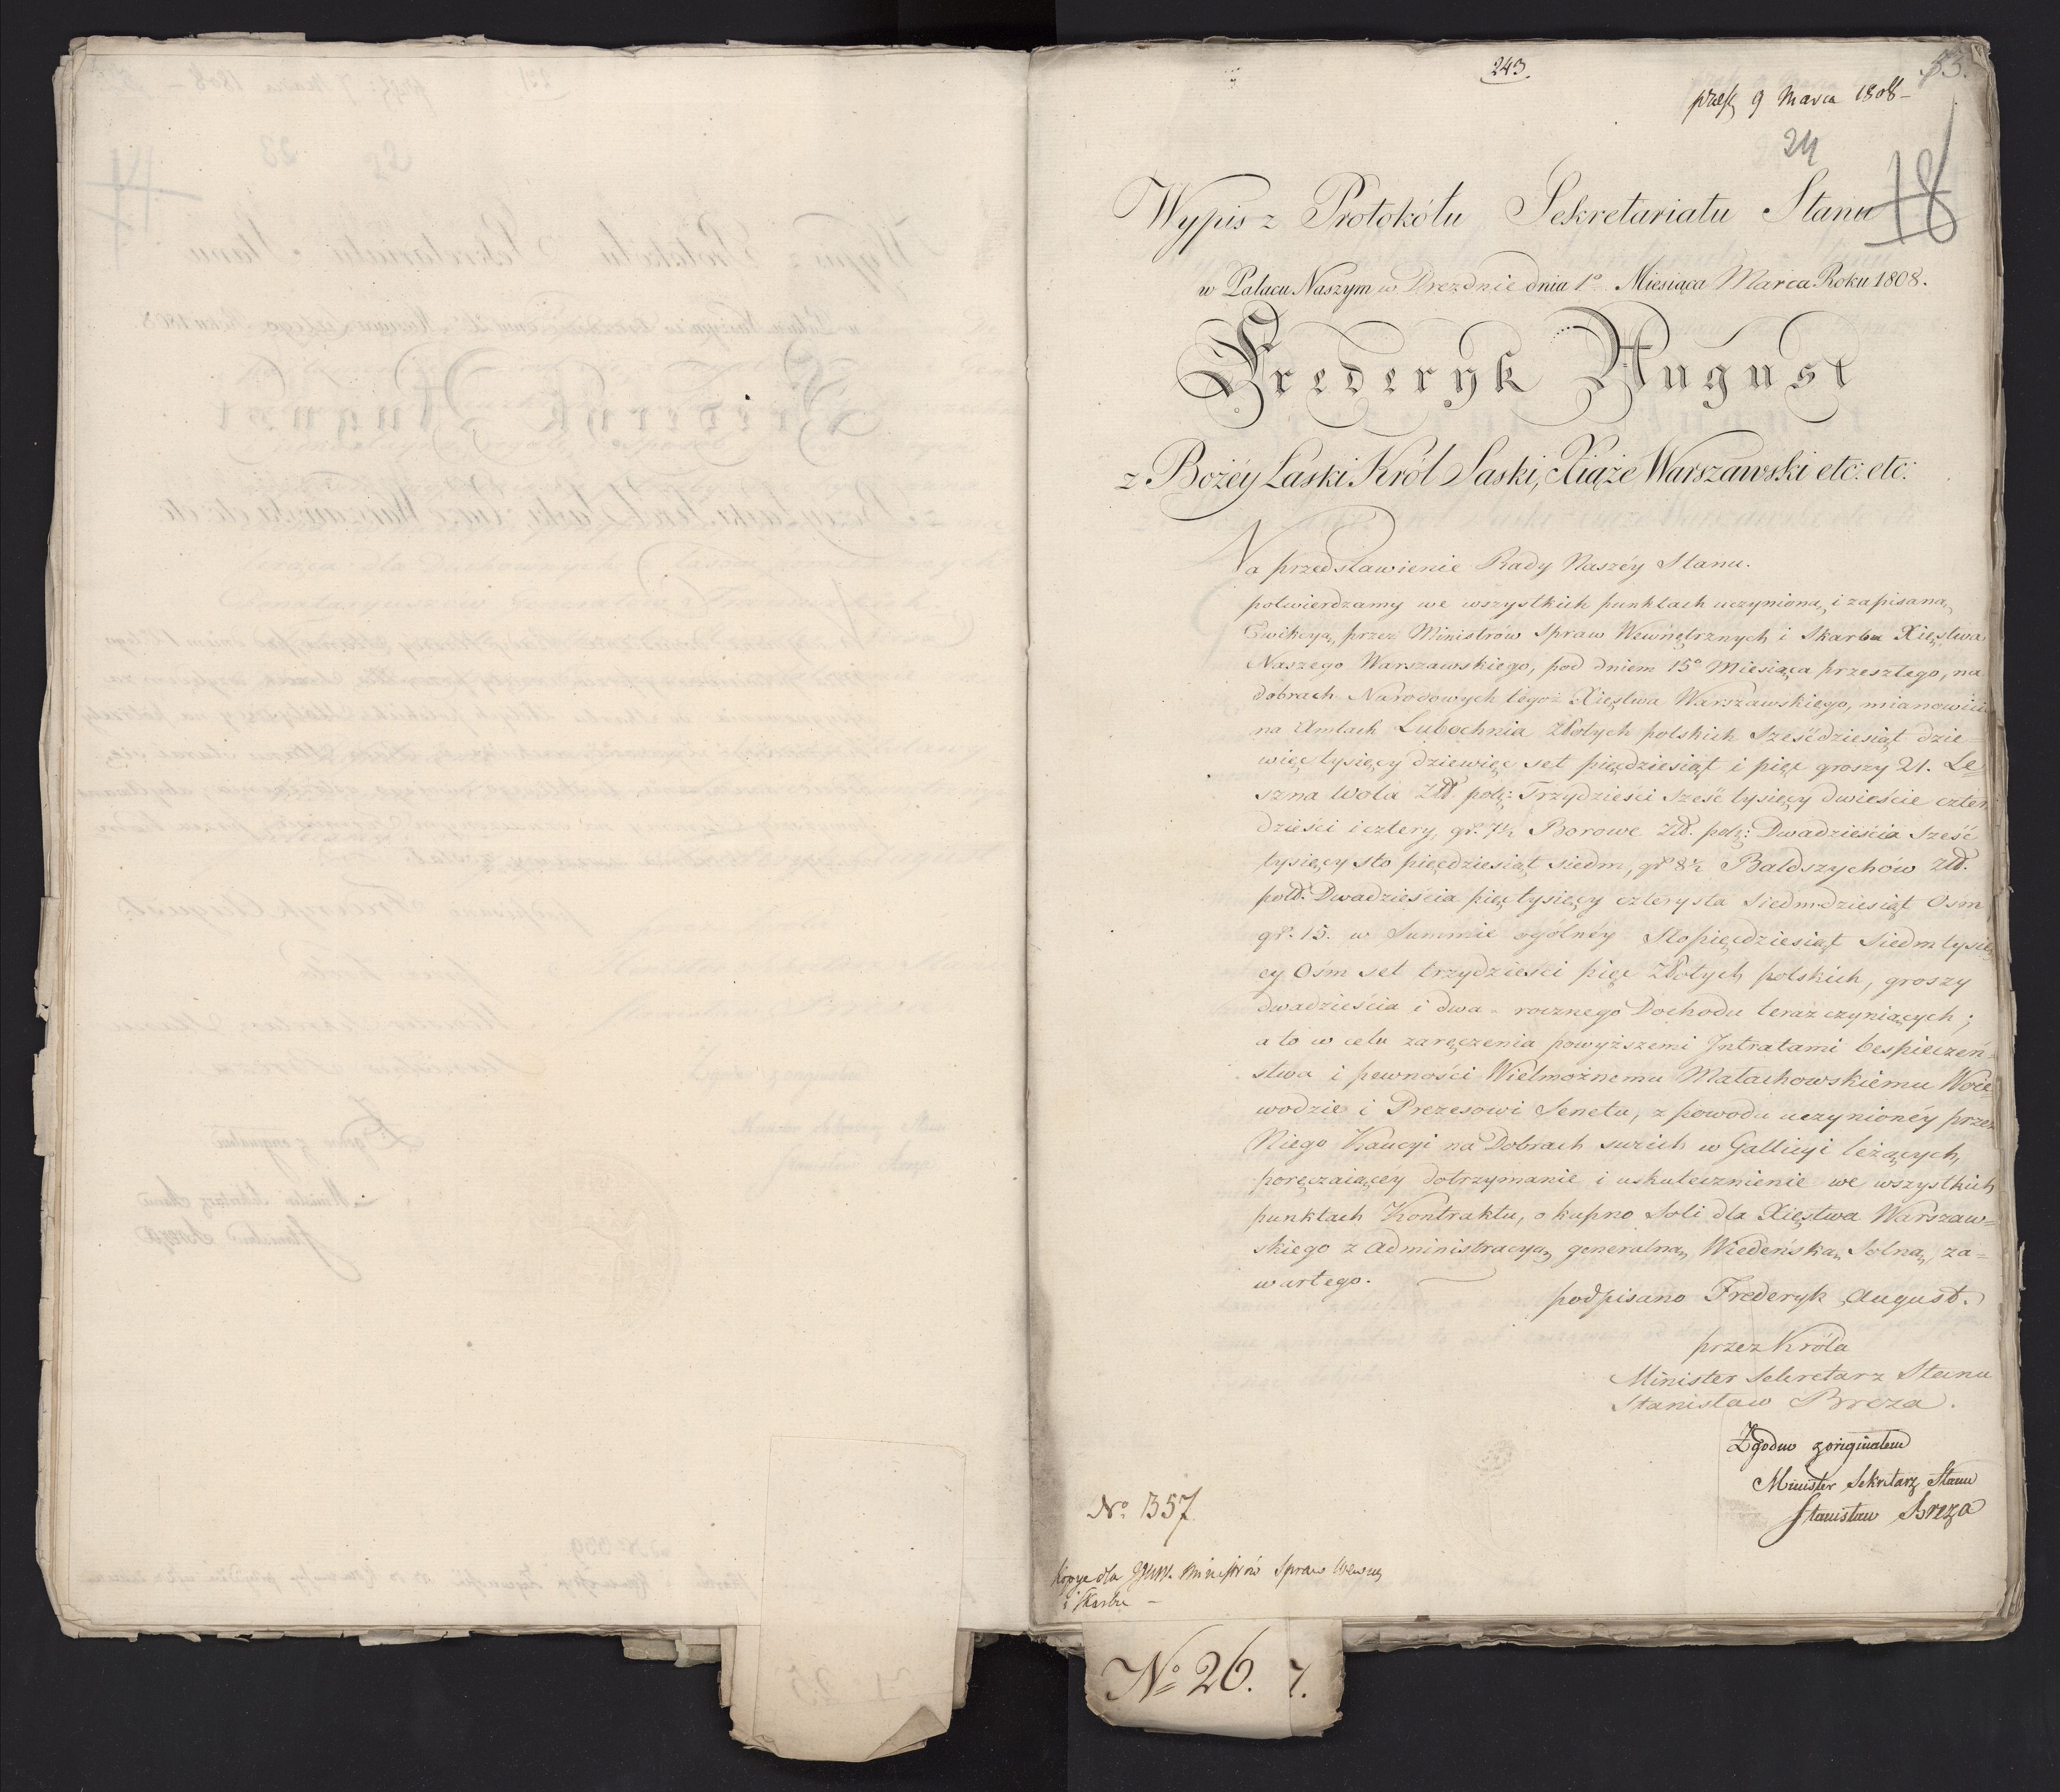 243.
53.
9 Marca 1808 –
24
18
Wypis z Protokółu Sekretariatu Stanu
w Pałacu Naszym w Dreznie dnia 1º Miesiąca Marca Roku 1808.
Frederyk August
z Bożéy Łaski Król Saski, Xiąże Warszawski etc: etc:
Na przedstawienie Rady Naszéy Stanu.
potwierdzamy we wszystkich punktach uczynioną i zapisaną
Ewikcyą, przez Ministrów Spraw Wewnętrznych i Skarbu Xięstwa
Naszego Warszawskiego, pod dniem 15º Miesiąca przeszłego, na
dobrach Narodowych tegoż Xięstwa Warszawskiego, mianowicie
na Amtach Lubochnia Złotych polskich Sześćdziesiąt dzie=
więć tysięcy dziewięć set pięćdziesiąt i pięć groszy 21. Le=
szna Wola Złł. pols: Trzydzieści sześć tysięcy dwieście czter
dzieści i cztery, gr. 7½ Borowe Złł. pols: Dwadzieścia sześć
tysięcy sto pięćdziesiąt siedm, gr 8½ Baldszychów Złł.
polł. Dwadzieścia pięć tysięcy czterysta siedmdziesiąt Ośm
gr. 15. w Summie ogólnéy Stopięćdziesiąt siedm tysię
cy Ośm set trzydzieści pięć Złotych polskich, groszy
dwadzieścia i dwa – rocznego Dochodu teraz czyniących;
a to w celu zaręczenia powyższemi Intratami bespieczeń=
stwa i pewności Wielmożnemu Małachowskiemu Woie=
wodzie i Prezesowi Senatu, z powodu uczynionéy przez
Niego Kaucyi na Dobrach swoich w Gallicyi leżących,
poręczaiącéy dotrzymanie i uskutecznienie we wszystkich
punktach Kontraktu, o kupno Soli dla Xięstwa Warszaw=
skiego z Administracyą generalną Wiedeńską Solną, za=
wartego.
podpisano Frederyk August.
przez Króla
Minister Sekretarz Stanu
Stanisław Breza.
Zgodno z originałem
Minister Sekretarz Stanu
Stanisław Breza
Nº 1357
Kopye dla JWW. Ministrów Spraw Wewn
i Skarbu –
Nº 26. 7.